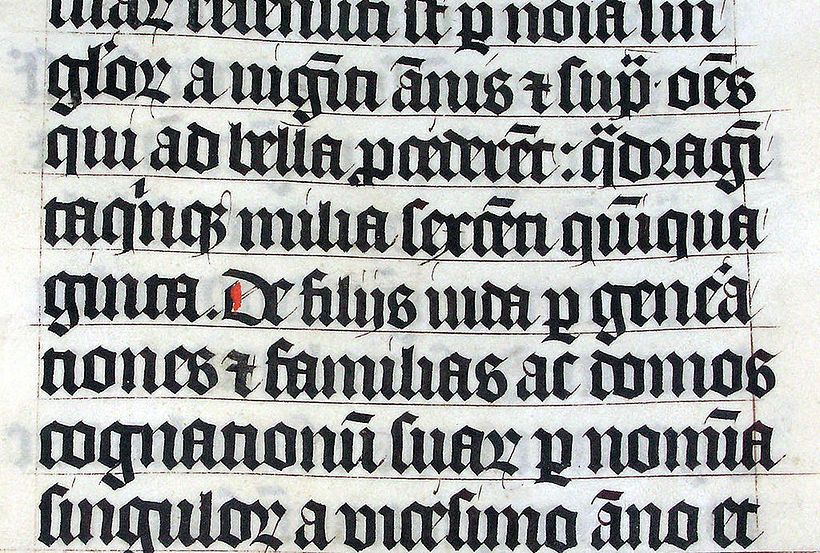 suaꝝ recensiti st̄ ꝑ noīa sin
gl'oꝝ a uigīti ānis ⁊ sup̄· oēs
qui ad bella ꝓcederēt : qͣdragī
taqⁱnqꝫ milia sexcēti quīqua
ginta. De filijs iuda ꝑ geneā
tiones ⁊ familias ac domos
cognationū suaꝝ ꝑ nomīa
singuloꝝ a vicesimo āno et